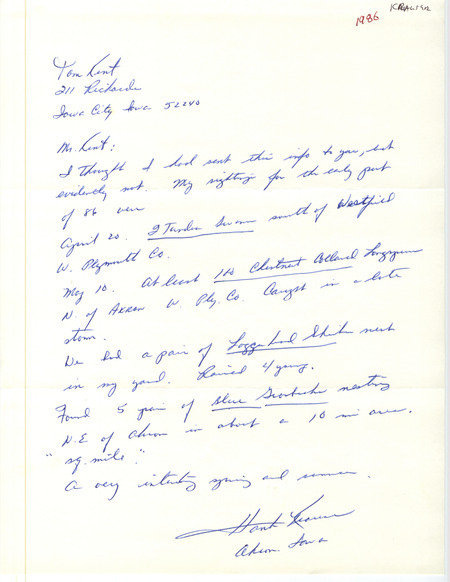 1986 KRALIER
Tom Kent
211 Richards
Iowa City Iowa 52240
Mr. Kent:
I thought I had sent this info to you, but
evidently not. My sightings for the early part
of 86 were
April 20. 2 Tundra Swans south of Westfield
W. Plymouth Co.
May 10. At least 140 Chestnut Collared Longspurs
N. of Akron W. Ply. Co. Caught in a late
storm.
We had a pair of Loggerhead Shrike nest
in my yard. Raised 4 young.
Found 5 pair of Blue Grosbeaks nesting
N.E. of Akron in about a 10 mi area.
"sq. mile."
A very interesting spring and summer.
Hank
Akron, Iowa